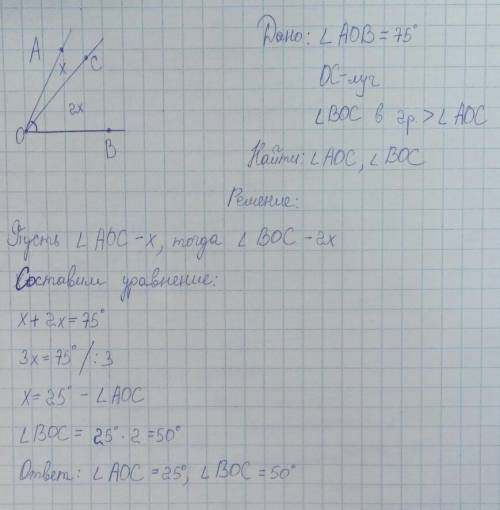 A
x
C
2x
O
B
Дано: ∠AOB = 75°
OC-луч
∠BOC в 2р. > ∠AOC
Найти: ∠AOC, ∠BOC
Решение:
Пусть ∠AOC - x, тогда ∠BOC - 2x
Составим уравнение:
x + 2x = 75°
3x = 75° /:3
x = 25° - ∠AOC
∠BOC = 25° · 2 = 50°
Ответ: ∠AOC = 25°, ∠BOC = 50°